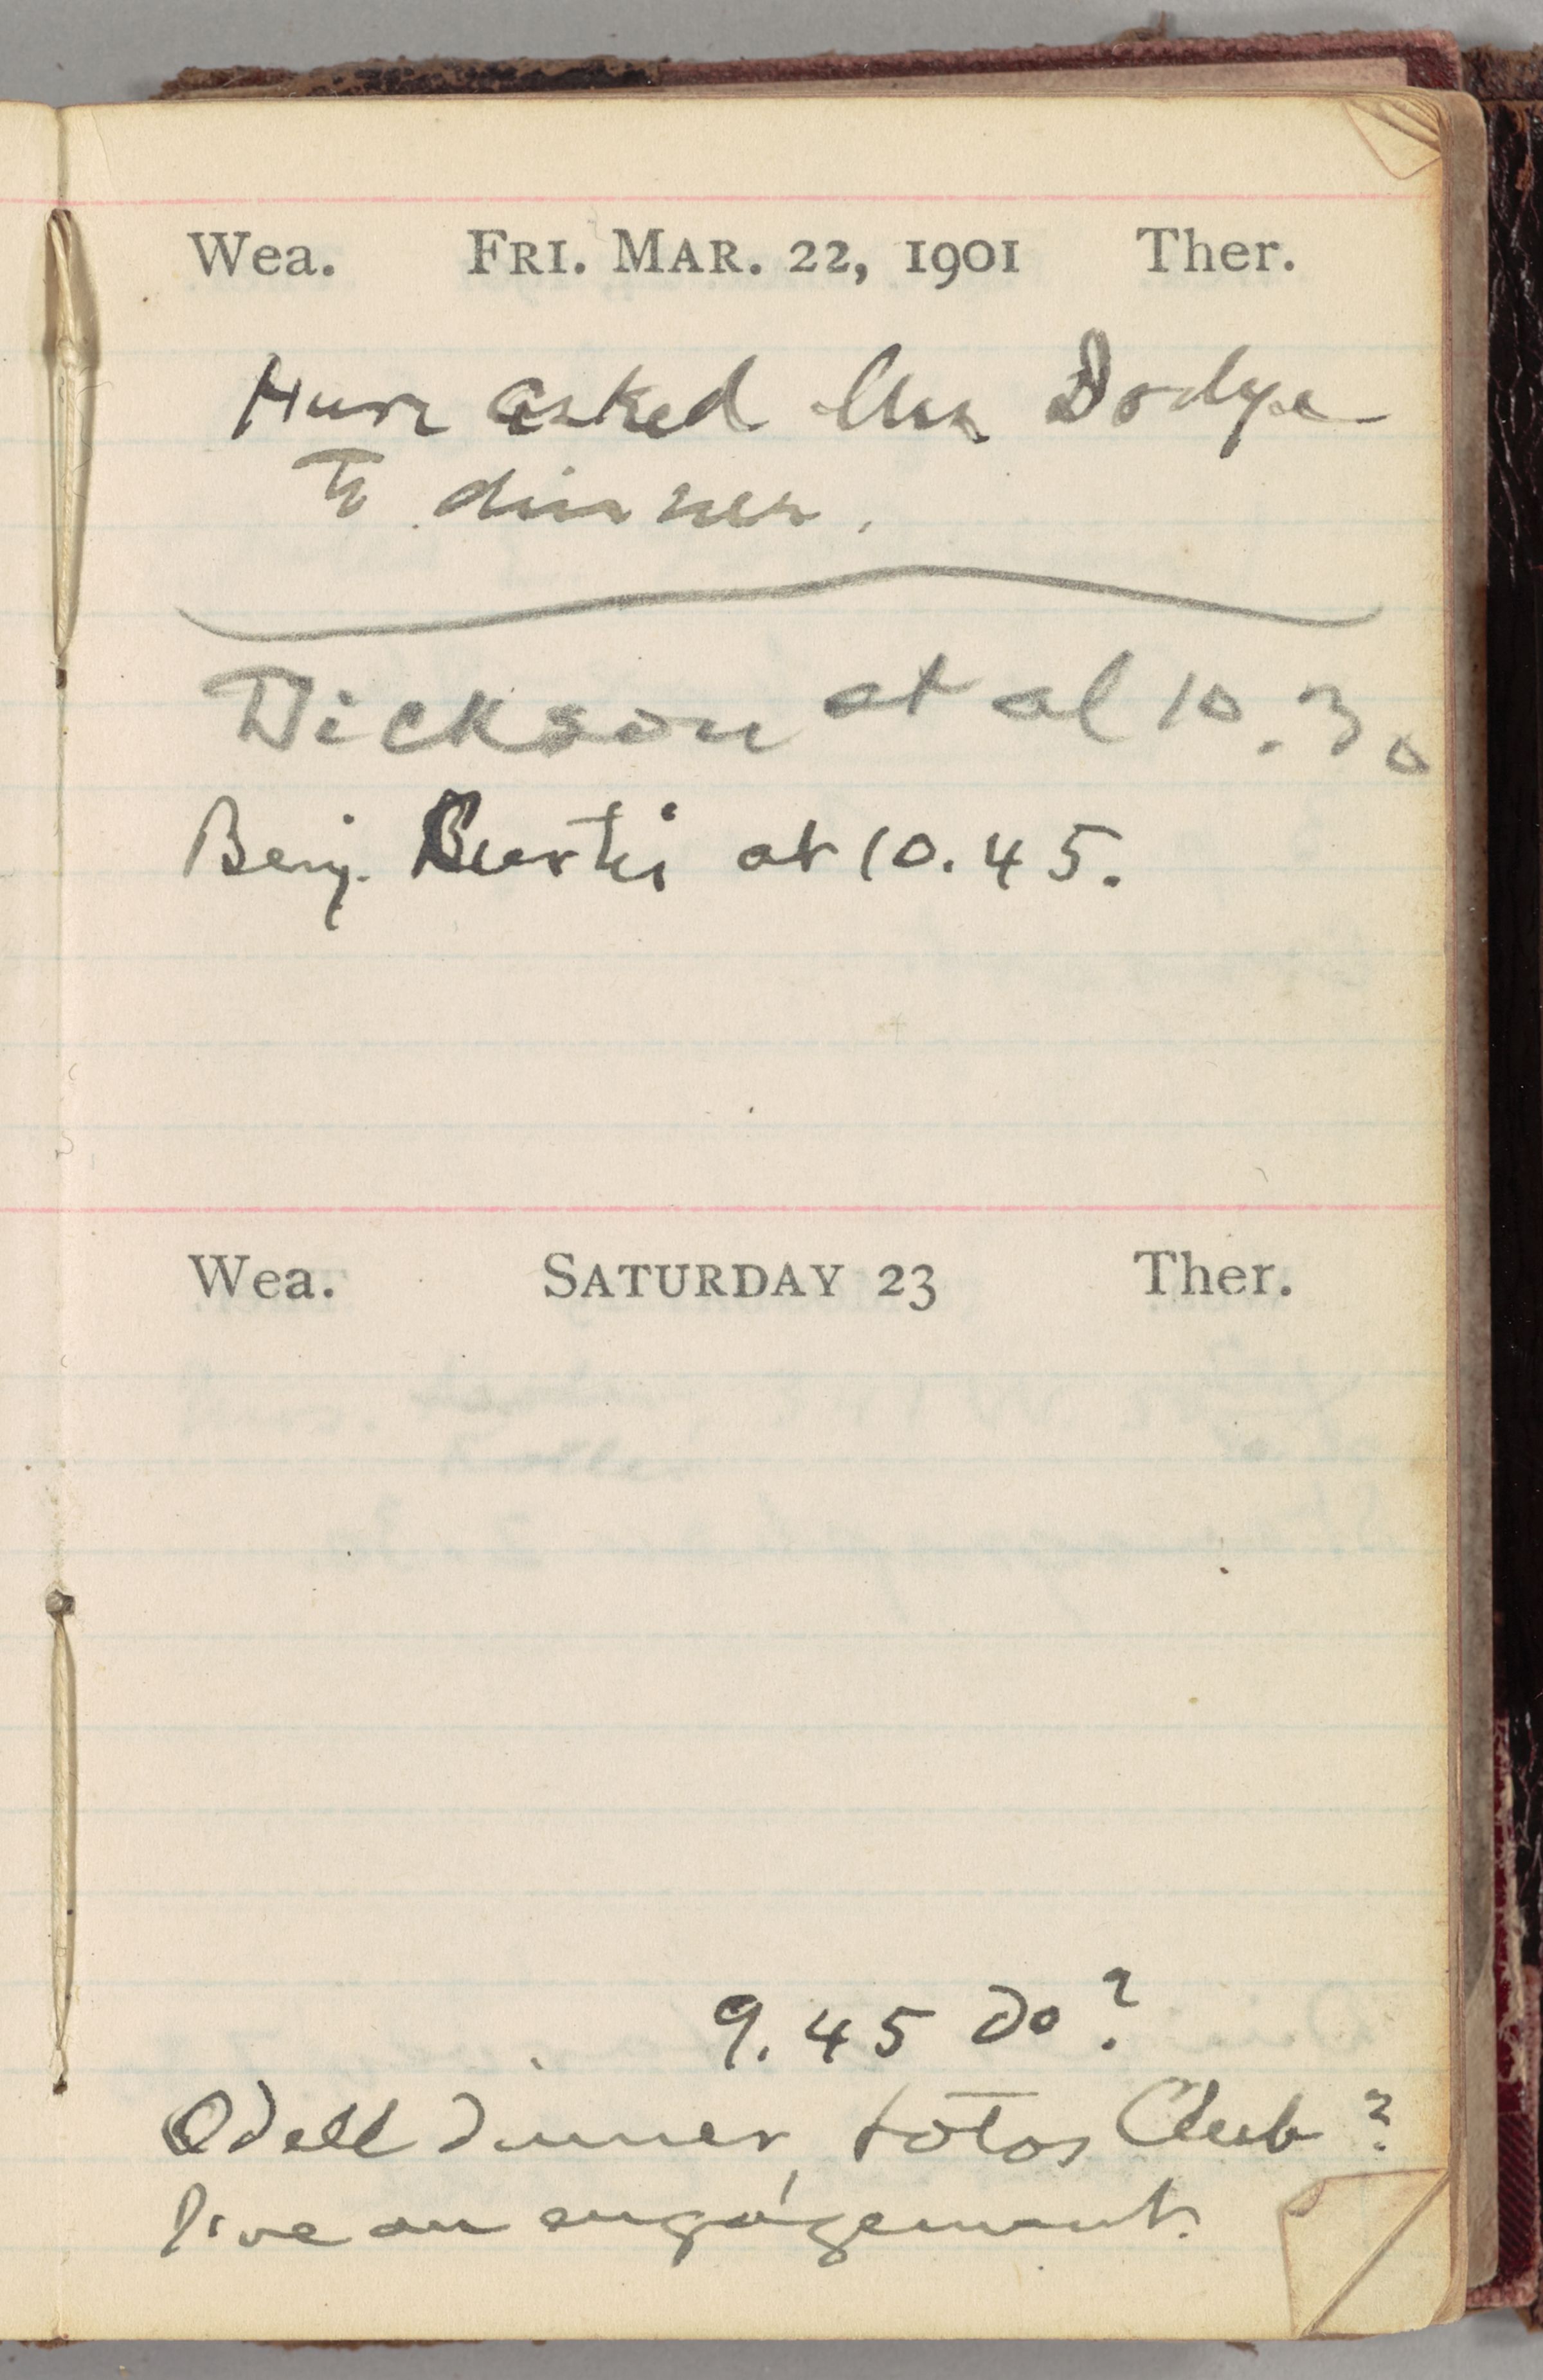 Wea. FRI. MAR. 22, 1901 Ther.
Have asked Mrs Dodge
to dinner.
Dickson at al 10.30
Benj. Curtis at 10.45.
Wea. SATURDAY 23 Ther.
9.45 do?
Odell dinner, Lotos Club?
I've an engagement.